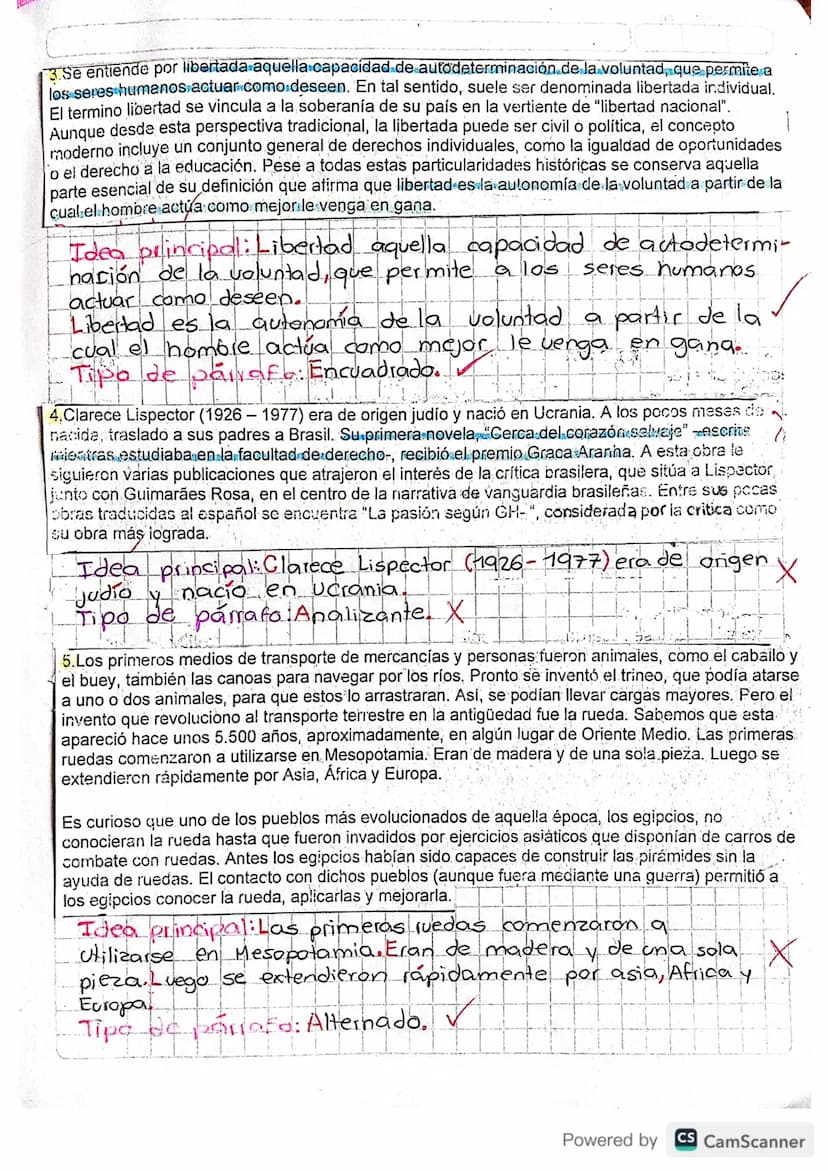 3.Se entiende por libertada aquella capacidad de autodeterminación de la voluntad, que permite a
los seres humanos actuar como deseen. En tal sentido, suele ser denominada libertada individual.
El termino libertad se vincula a la soberanía de su país en la vertiente de "libertad nacional".
Aunque desde esta perspectiva tradicional, la libertada puede ser civil o política, el concepto
moderno incluye un conjunto general de derechos individuales, como la igualdad de oportunidades
o el derecho a la educación. Pese a todas estas particularidades históricas se conserva aquella
parte esencial de su definición que afirma que libertad es la autonomía de la voluntad a partir de la
cual el hombre actúa como mejor le venga en gana.
Idea principal: Libertad aquella capacidad de autodetermi-
nación de la voluntad, que permite a los seres humanos
actuar como deseen.
Libertad es la autonomía de la voluntad a partir de la
cual el hombre actúa como mejor le venga en gana.
Tipo de párrafo: Encuadrado.
4.Clarece Lispector (1926 – 1977) era de origen judío y nació en Ucrania. A los pocos meses de
nacida, traslado a sus padres a Brasil. Su primera novela, "Cerca del corazón salvaje" –escrita
mientras estudiaba en la facultad de derecho-, recibió el premio Graca Aranha. A esta obra le
siguieron varias publicaciones que atrajeron el interés de la crítica brasilera, que sitúa a Lispector,
junto con Guimarães Rosa, en el centro de la narrativa de vanguardia brasileñas. Entre sus pocas
obras traducidas al español se encuentra "La pasión según GH- ", considerada por la critica como
su obra más lograda.
Idea principal: Clarece Lispector (1926-1977) era de origen
judío y nacío en Ucrania.
Tipo de párrafo: Analizante.
5.Los primeros medios de transporte de mercancías y personas fueron animales, como el caballo y
el buey, también las canoas para navegar por los ríos. Pronto se inventó el trineo, que podía atarse
a uno o dos animales, para que estos lo arrastraran. Así, se podían llevar cargas mayores. Pero el
invento que revoluciono al transporte terrestre en la antigüedad fue la rueda. Sabemos que esta
apareció hace unos 5.500 años, aproximadamente, en algún lugar de Oriente Medio. Las primeras
ruedas comenzaron a utilizarse en Mesopotamia. Eran de madera y de una sola pieza. Luego se
extendieron rápidamente por Asia, África y Europa.
Es curioso que uno de los pueblos más evolucionados de aquella época, los egipcios, no
conocieran la rueda hasta que fueron invadidos por ejercicios asiáticos que disponían de carros de
combate con ruedas. Antes los egipcios habían sido capaces de construir las pirámides sin la
ayuda de ruedas. El contacto con dichos pueblos (aunque fuera mediante una guerra) permitió a
los egipcios conocer la rueda, aplicarlas y mejorarla.
Idea principal: Las primeras ruedas comenzaron a
utilizarse en Mesopotamia. Eran de madera y de una sola
pieza. Luego se extendieron rápidamente por asia, Africa y
Europa.
Tipo de párrafo: Alternado.
Powered by CS CamScanner